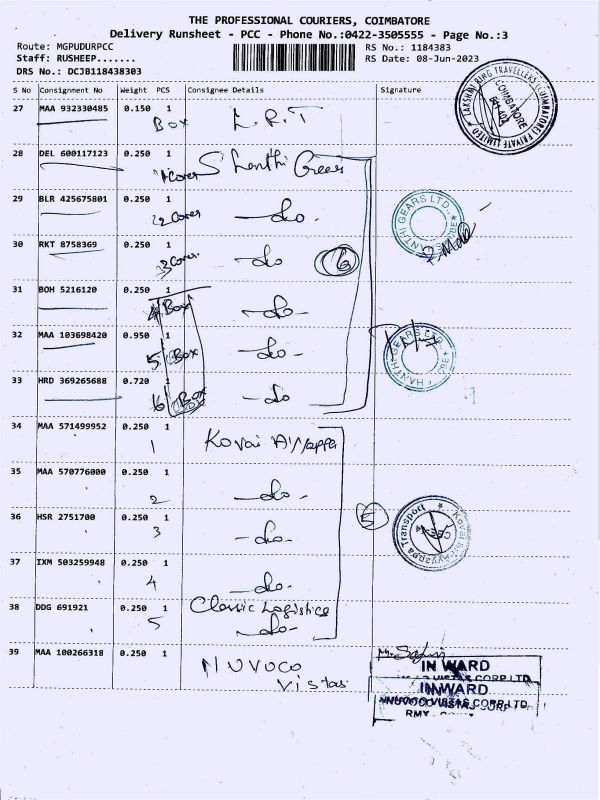 THE PROFESSIONAL COURIERS, COIMBATORE
Delivery Runsheet - PCC - Phone No.:0422-3505555 - Page No.:3
Route: MGPUDURPCC
RS No.: 1184383
Staff: RUSHEEP.......
RS Date: 08-Jun-2023
DRS No.: DCJB118438303
S No Consignment No Weight PCS Consignee Details Signature
27 MAA 932330485 0.150 1 L.R.T
Box
28 DEL 600117123 0.250 1 Shanthi Gears
1 Cover
29 BLR 425675801 0.250 1
2 Cover -do-
30 RKT 8758369 0.250 1
3 Cover -do- 6
31 BOH 5216120 0.250 1
4 Box -do-
32 MAA 103698420 0.950 1
5 Box -do-
33 HRD 369265688 0.720 1
6 Box -do-
34 MAA 571499952 0.250 1 Kovai Ayyappa
1
35 MAA 570776000 0.250 1
2 -do-
36 HSR 2751700 0.250 1 5
3 -do-
37 IXM 503259948 0.250 1
4 -do-
38 DDG 691921 0.250 1 Classic Logistics
5 -do-
39 MAA 100266318 0.250 1 Nuvoco
Vistas
LAKSHMI RING TRAVELLERS (COIMBATORE) PRIVATE LIMITED
COIMBATORE
SHANTHI GEARS LTD.
SHANTHI GEARS LTD.
Kovai Sri Ayyappa Transport
CBE
IN WARD
VISTAS CORP LTD
INWARD
NUVOCO VISTAS CORP LTD